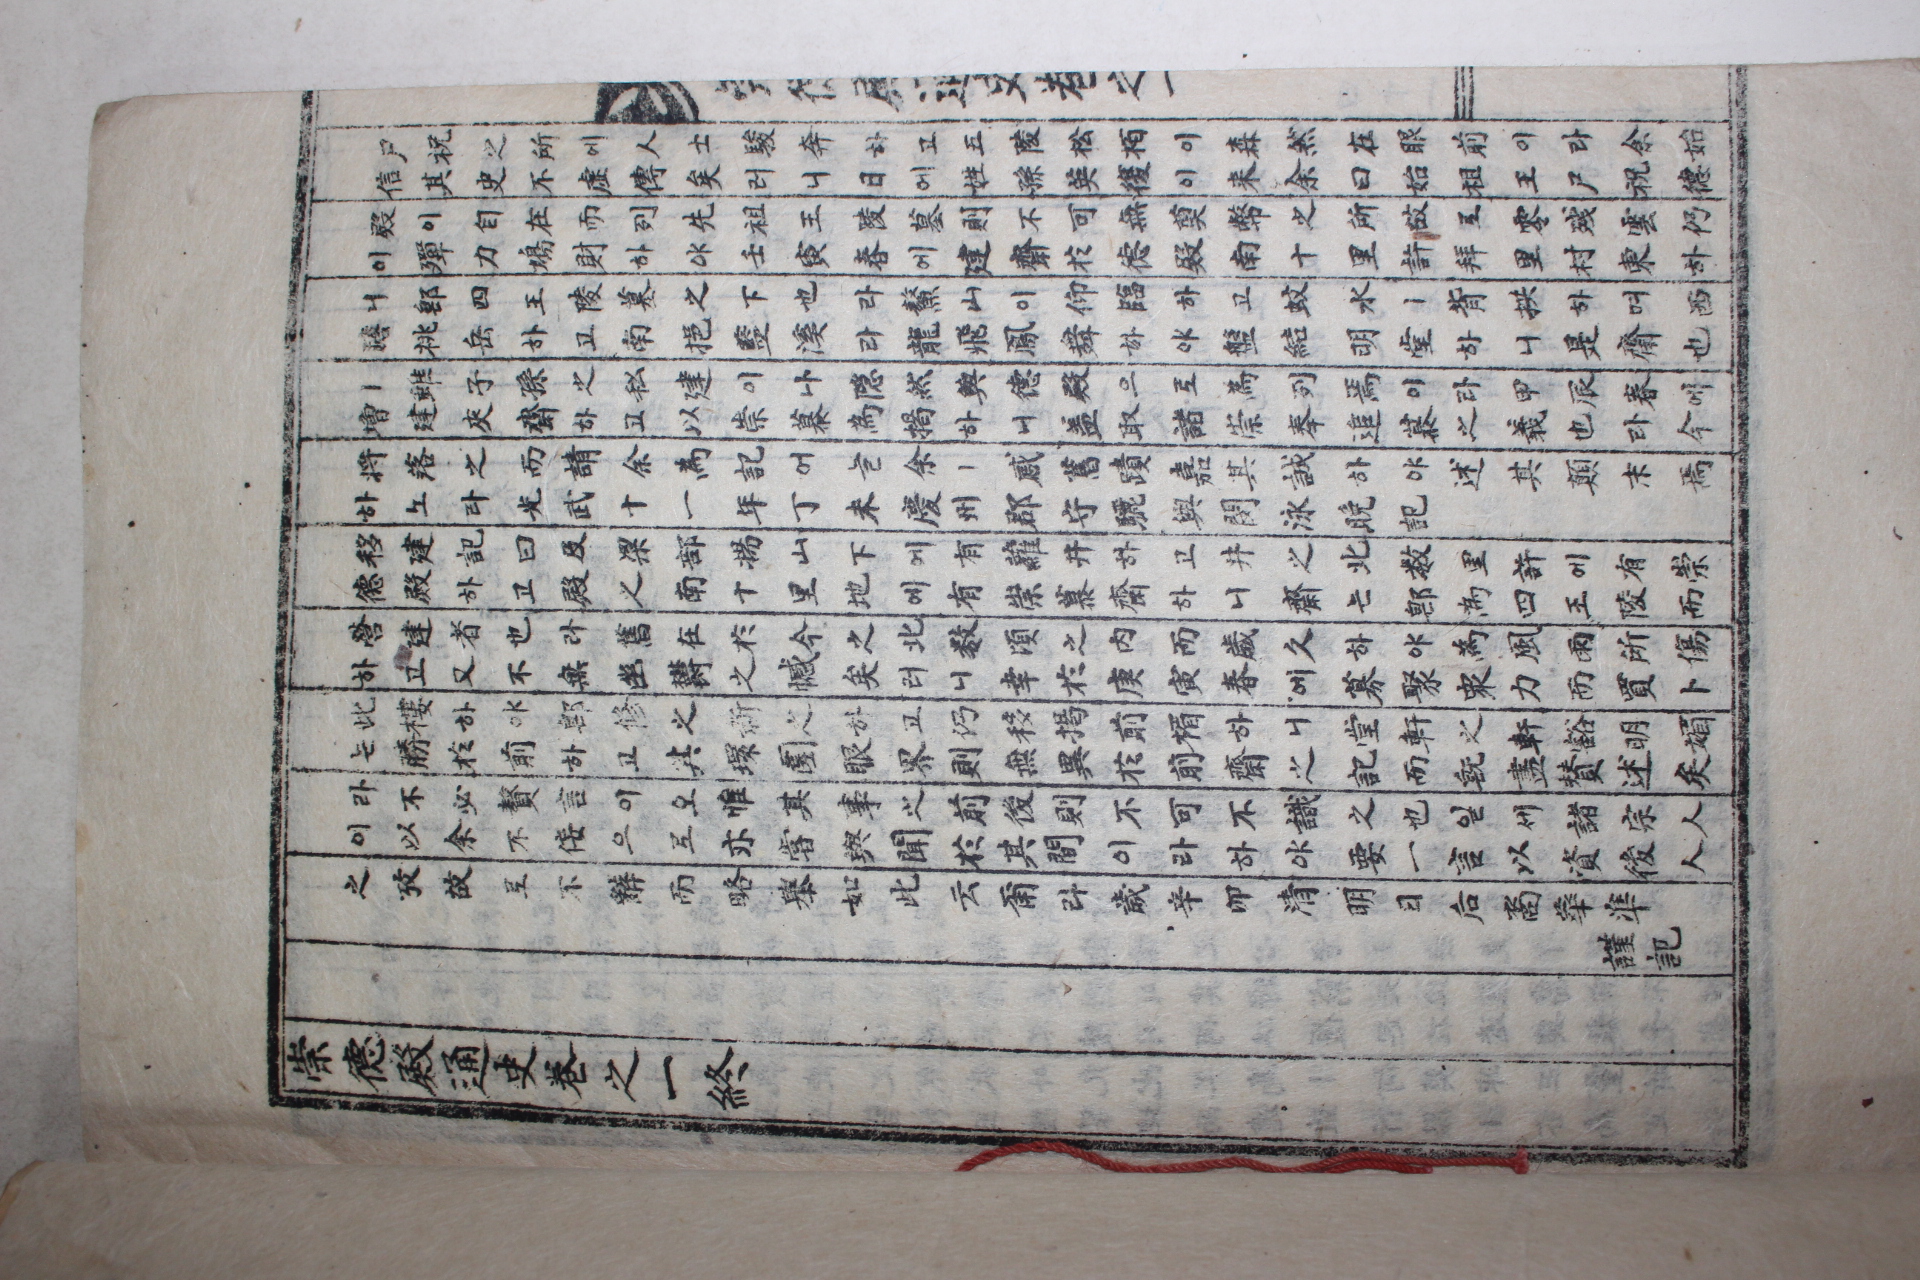 尸祝之所에人士駿奔하고五陵松栢이森然在眼前이라余始
信其史不虛傳矣러니日에姓孫英復이来余曰始祖王尸祝德
殿이自在而列先祖王陵墓則不可無奠幣之所故로零残雲仍
이殫力鳩財하야壬寅春에建齋於德殿南十里許拜里村東하
니鄭四王陵墓之下也라鰲山이仰臨하고蚊水ㅣ背拱하며西
禱桃岳하고南挹藍溪라龍飛鳳舞하야盤結明堂하니是齋也
ㅣ雖子孫之私建이나隠然與德殿으로為列焉이라甲辰春에
增建夾齋하고以崇慕為揭하니盖取諸崇奉追慕之義也라今
将落之而請余為記어늘余ㅣ感舊蹟嘉其誠하야述其顛末焉
하노라光武十一年丁未慶州郡守驪興閔泳晩記
移建記曰及梁部揚山下에有蘿井하고井之北数里許에有崇
德殿하고殿之南十里地에有崇慕齋하니齋는鄭為四王陵而
營建者也라舊在於今之北数頃之内而歲久하야為風雨所傷
하고又不無幽欝之憾矣러니幸於庚寅春에募聚衆力而買卜
此樓하야鄭修之新之하고仍移揭前楣하니堂軒之軒豁明媚
는勝於前하고其環圜眼界則無異於前齋之記而旣盡賛述矣
라不必贅言이오惟其事之前後則不可不識之也일세諸宗人
이以余不佞으로亦嘗與聞於其間이라하야要一言以資後人
之攷故로不辭而略擧如此云爾라歲辛卯清明日后裔華準
謹記
崇德殿通史卷之一終
崇德殿通史卷之一